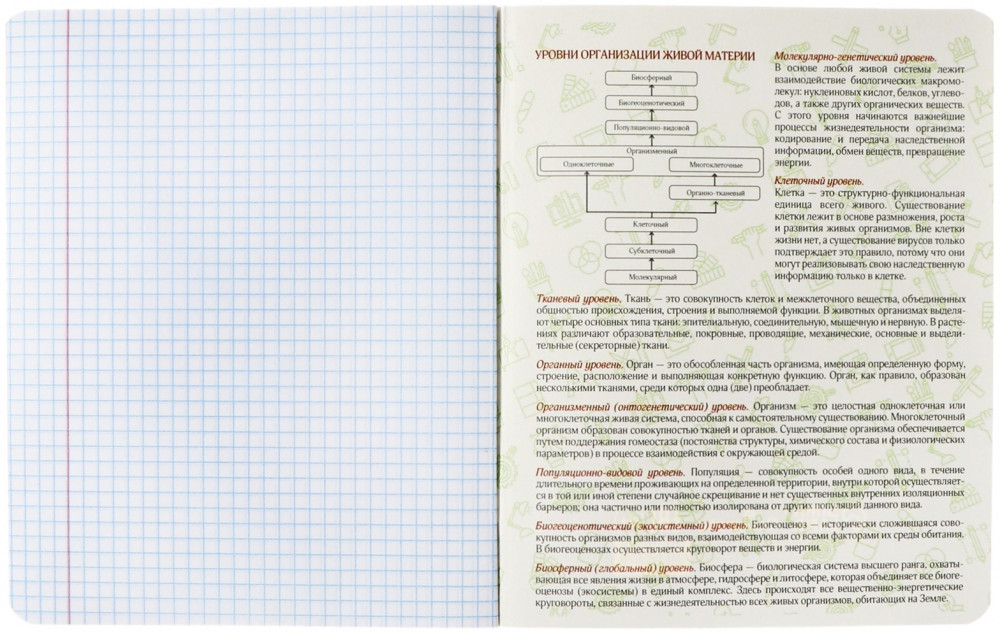 УРОВНИ ОРГАНИЗАЦИИ ЖИВОЙ МАТЕРИИ
Биосферный
Биогеоценотический
Популяционно-видовой
Организменный
Одноклеточные
Многоклеточные
Органно-тканевый
Клеточный
Субклеточный
Молекулярный
Молекулярно-генетический уровень.
В основе любой живой системы лежит
взаимодействие биологических макромо-
лекул: нуклеиновых кислот, белков, углево-
дов, а также других органических веществ.
С этого уровня начинаются важнейшие
процессы жизнедеятельности организма:
кодирование и передача наследственной
информации, обмен веществ, превращение
энергии.
Клеточный уровень.
Клетка — это структурно-функциональная
единица всего живого. Существование
клетки лежит в основе размножения, роста
и развития живых организмов. Вне клетки
жизни нет, а существование вирусов только
подтверждает это правило, потому что они
могут реализовывать свою наследственную
информацию только в клетке.
Тканевый уровень. Ткань — это совокупность клеток и межклеточного вещества, объединенных
общностью происхождения, строения и выполняемой функции. В животных организмах выделя-
ют четыре основных типа ткани: эпителиальную, соединительную, мышечную и нервную. В расте-
ниях различают образовательные, покровные, проводящие, механические, основные и выдели-
тельные (секреторные) ткани.
Органный уровень. Орган — это обособленная часть организма, имеющая определенную форму,
строение, расположение и выполняющая конкретную функцию. Орган, как правило, образован
несколькими тканями, среди которых одна (две) преобладает.
Организменный (онтогенетический) уровень. Организм — это целостная одноклеточная или
многоклеточная живая система, способная к самостоятельному существованию. Многоклеточный
организм образован совокупностью тканей и органов. Существование организма обеспечивается
путем поддержания гомеостаза (постоянства структуры, химического состава и физиологических
параметров) в процессе взаимодействия с окружающей средой.
Популяционно-видовой уровень. Популяция — совокупность особей одного вида, в течение
длительного времени проживающих на определенной территории, внутри которой осуществляет-
ся в той или иной степени случайное скрещивание и нет существенных внутренних изоляционных
барьеров; она частично или полностью изолирована от других популяций данного вида.
Биогеоценотический (экосистемный) уровень. Биогеоценоз — исторически сложившаяся сово-
купность организмов разных видов, взаимодействующая со всеми факторами их среды обитания.
В биогеоценозах осуществляется круговорот веществ и энергии.
Биосферный (глобальный) уровень. Биосфера — биологическая система высшего ранга, охваты-
вающая все явления жизни в атмосфере, гидросфере и литосфере, которая объединяет все биоге-
оценозы (экосистемы) в единый комплекс. Здесь происходят все вещественно-энергетические
круговороты, связанные с жизнедеятельностью всех живых организмов, обитающих на Земле.